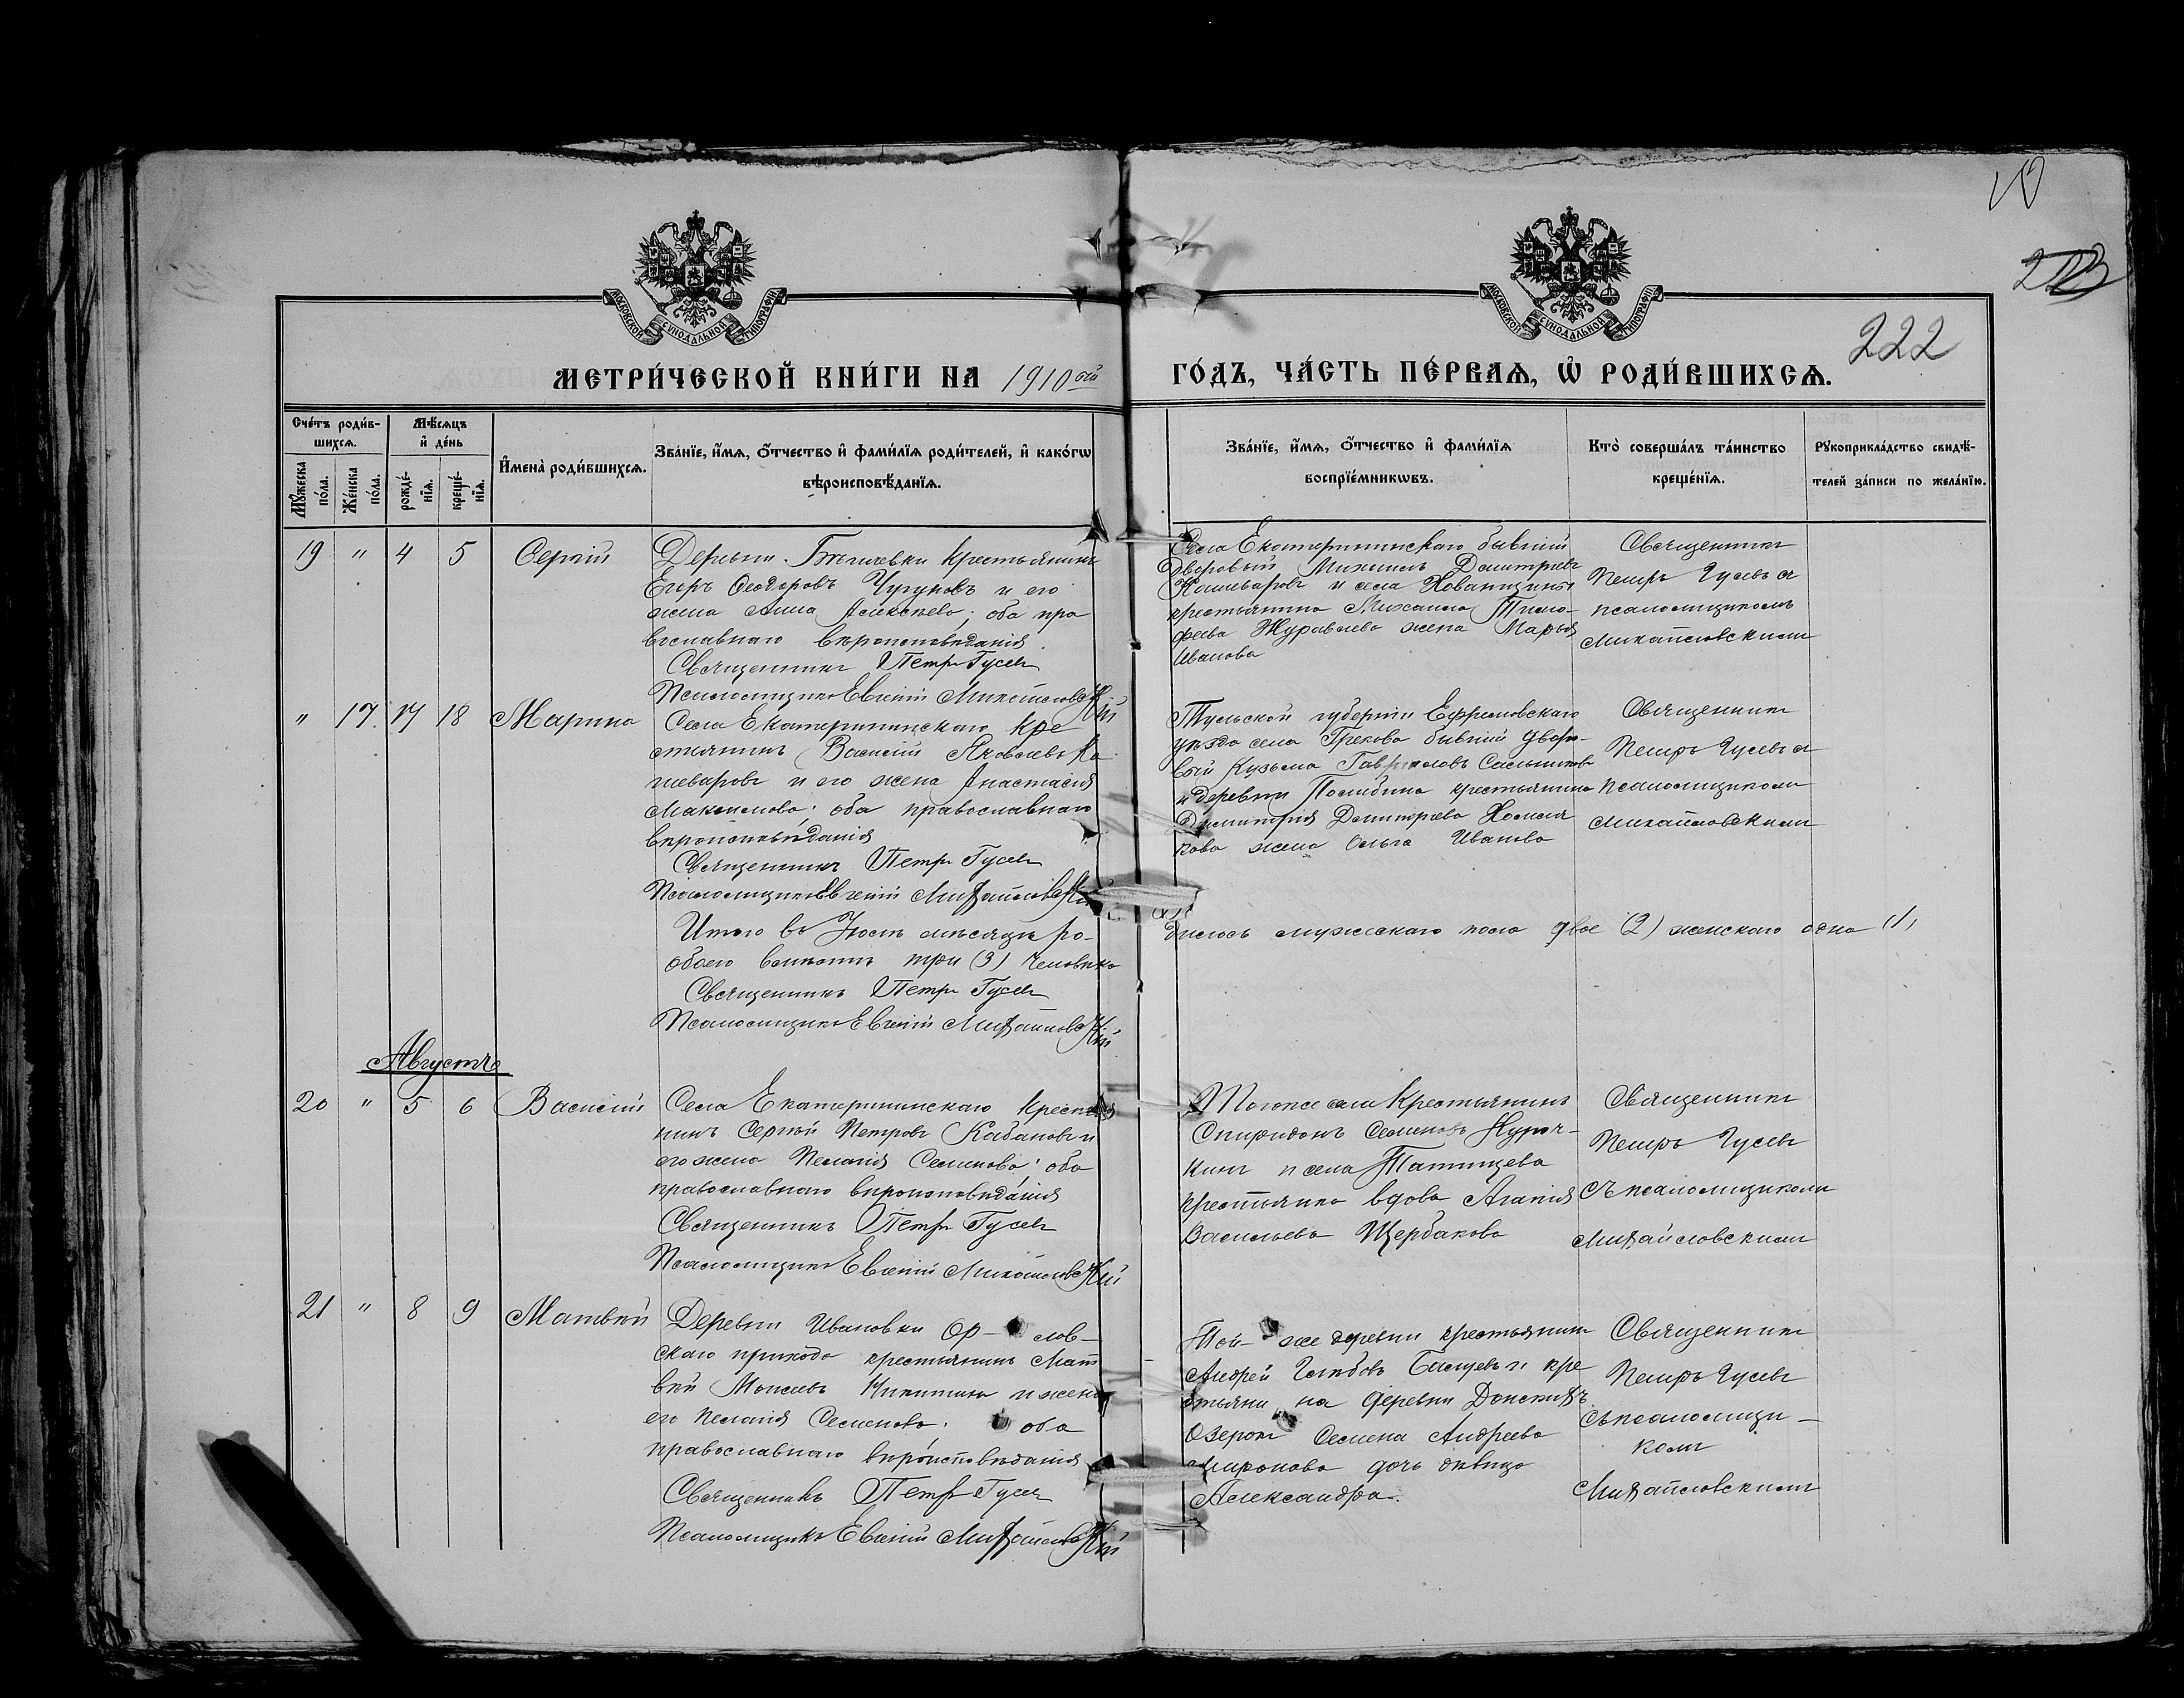 10
222
МОСКОВСКОЙ СУНОДАЛЬНОЙ ТИПОГРАФІИ
МОСКОВСКОЙ СУНОДАЛЬНОЙ ТИПОГРАФІИ
МЕТРИ́ЧЕСКОЙ КНИ́ГИ НА 1910 ый
ГО́ДЪ, ЧА́СТЬ ПЕ́РВАѦ, Ѡ҆ РОДИ́ВШИХСѦ.
Сче́тъ роди́в-
шихсѧ.
Мꙋ́жеска по́ла.
Же́нска по́ла.
Мѣ́сѧцъ
и҆ де́нь
рожде́-нїѧ.
креще́-нїѧ.
И҆мена̀ роди́вшихсѧ.
Зва́нїе, и҆́мѧ, ѻ҆́тчество и҆ фами́лїѧ роди́телей, и҆ како́гѡ
вѣроисповѣ́данїѧ.
Зва́нїе, и҆́мѧ, ѻ҆́тчество и҆ фами́лїѧ
воспрїе́мникѡвъ.
Кто̀ соверша́лъ та́инство
креще́нїѧ.
Рꙋкоприкла́дство свидѣ́-
телей за́писи по жела́нїю.
19 " 4 5 Сергій
Деревни крестьянинъ
Егоръ Ѳеодоровъ Чугуновъ и его
жена Анна Алексѣева; оба пра
вославнаго вѣроисповѣданія.
Священникъ Петръ Гусевъ
Псаломщикъ Евгеній Михайловскій
Села Екатерининскаго бывшій
дворовый Михаилъ Димитріевъ
Кашеваровъ и села Хованщины
крестьянина Михаила Тимо-
феева Журавлева жена Марья
Иванова
Священникъ
Петръ Гусевъ съ
псаломщикомъ
Михайловскимъ
" 17. 17 18 Марина
Села Екатерининскаго кре
стьянинъ Василій Яковлевъ Ка
шеваровъ и его жена Анастасія
Максимова; оба православнаго
вѣроисповѣданія
Священникъ Петръ Гусевъ
Псаломщикъ Евгеній Михайловскій
Тульской губерніи Ефремовскаго
уѣзда села Грекова бывшій дворо-
вый Кузьма Гавриловъ Сальниковъ
и деревни крестьянина
Димитрія Димитріева Хомя
кова жена Ольга Иванова
Священникъ
Петръ Гусевъ съ
псаломщикомъ
Михайловскимъ
Итого въ Іюлѣ мѣсяцѣ ро-
дилось мужескаго пола двое (2) женскаго одна (1)
обоего вмѣстѣ три (3) человѣка
Священникъ Петръ Гусевъ
Псаломщикъ Евгеній Михайловскій
Августъ
20 " 5 6 Василій
Села Екатерининскаго крестья
нинъ Сергѣй Петровъ Кабановъ и
его жена Пелагія Семенова; оба
православнаго вѣроисповѣданія
Священникъ Петръ Гусевъ
Псаломщикъ Евгеній Михайловскій
Того же села крестьянинъ
Спиридонъ Семеновъ Куроч-
кинъ и села Татищева
крестьянка вдова Агапія
Васильева Щербакова
Священникъ
Петръ Гусевъ
съ псаломщикомъ
Михайловскимъ
21 " 8 9 Матвѣй
Деревни Ивановки Ор- лов-
скаго прихода крестьянинъ Мат
вѣй Моисеевъ Никитинъ и жена
его Пелагія Семенова; оба
православнаго вѣроисповѣданія
Священникъ Петръ Гусевъ
Псаломщикъ Евгеній Михайловскій
Той- же деревни крестьянинъ
Андрей Глѣбовъ и кре
стьяни на деревни Донскихъ
Озерокъ Семена Андреева
Миронова дочь дѣвица
Александра.
Священникъ
Петръ Гусевъ
съ псаломщи-
комъ
Михайловскимъ